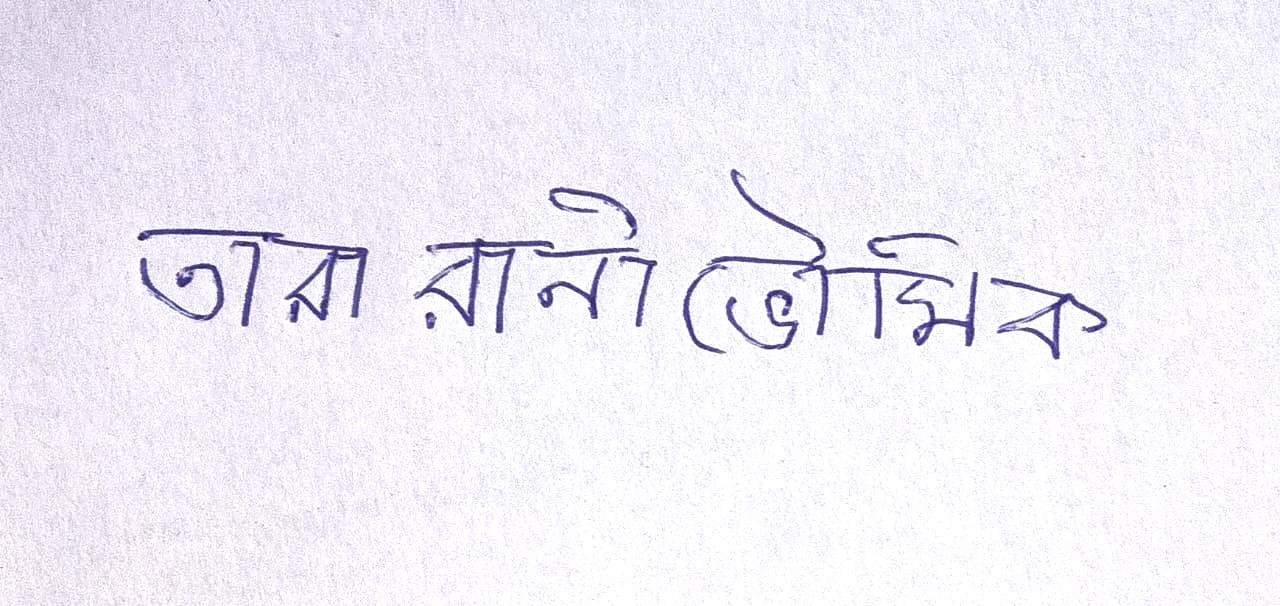 তারা রানী ভৌমিক